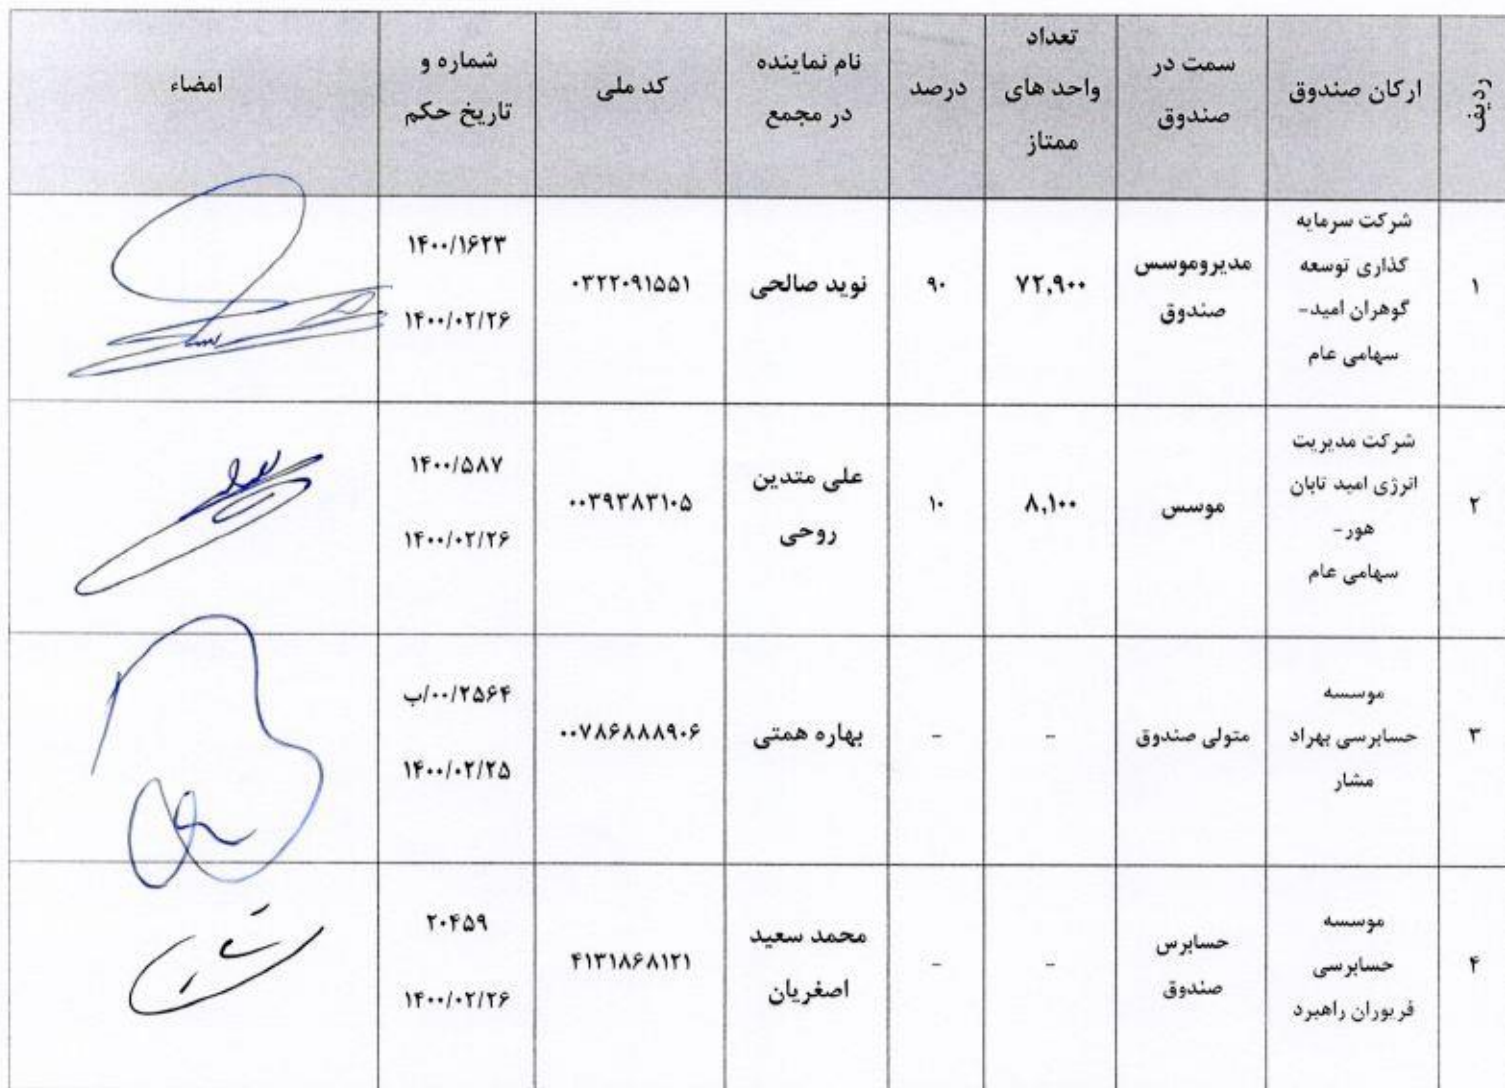 ردیف
ارکان صندوق
سمت در
صندوق
تعداد
واحد های
ممتاز
درصد
نام نماینده
در مجمع
کد ملی
شماره و
تاریخ حکم
امضاء
۱
شرکت سرمایه
گذاری توسعه
گوهران امید-
سهامی عام
مدیروموسس
صندوق
۷۲,۹۰۰
۹۰
نوید صالحی
۰۳۲۲۰۹۱۵۵۱
۱۴۰۰/۱۶۲۳
۱۴۰۰/۰۲/۲۶
۲
شرکت مدیریت
انرژی امید تابان
هور-
سهامی عام
موسس
۸,۱۰۰
۱۰
علی متدین
روحی
۰۰۳۹۳۸۳۱۰۵
۱۴۰۰/۵۸۷
۱۴۰۰/۰۲/۲۶
۳
موسسه
حسابرسی بهراد
مشار
متولی صندوق
-
-
بهاره همتی
۰۰۷۸۶۸۸۸۹۰۶
۰۰/۲۵۶۴/ب
۱۴۰۰/۰۲/۲۵
۴
موسسه
حسابرسی
فریوران راهبرد
حسابرس
صندوق
-
-
محمد سعید
اصغریان
۴۱۳۱۸۶۸۱۲۱
۲۰۴۵۹
۱۴۰۰/۰۲/۲۶